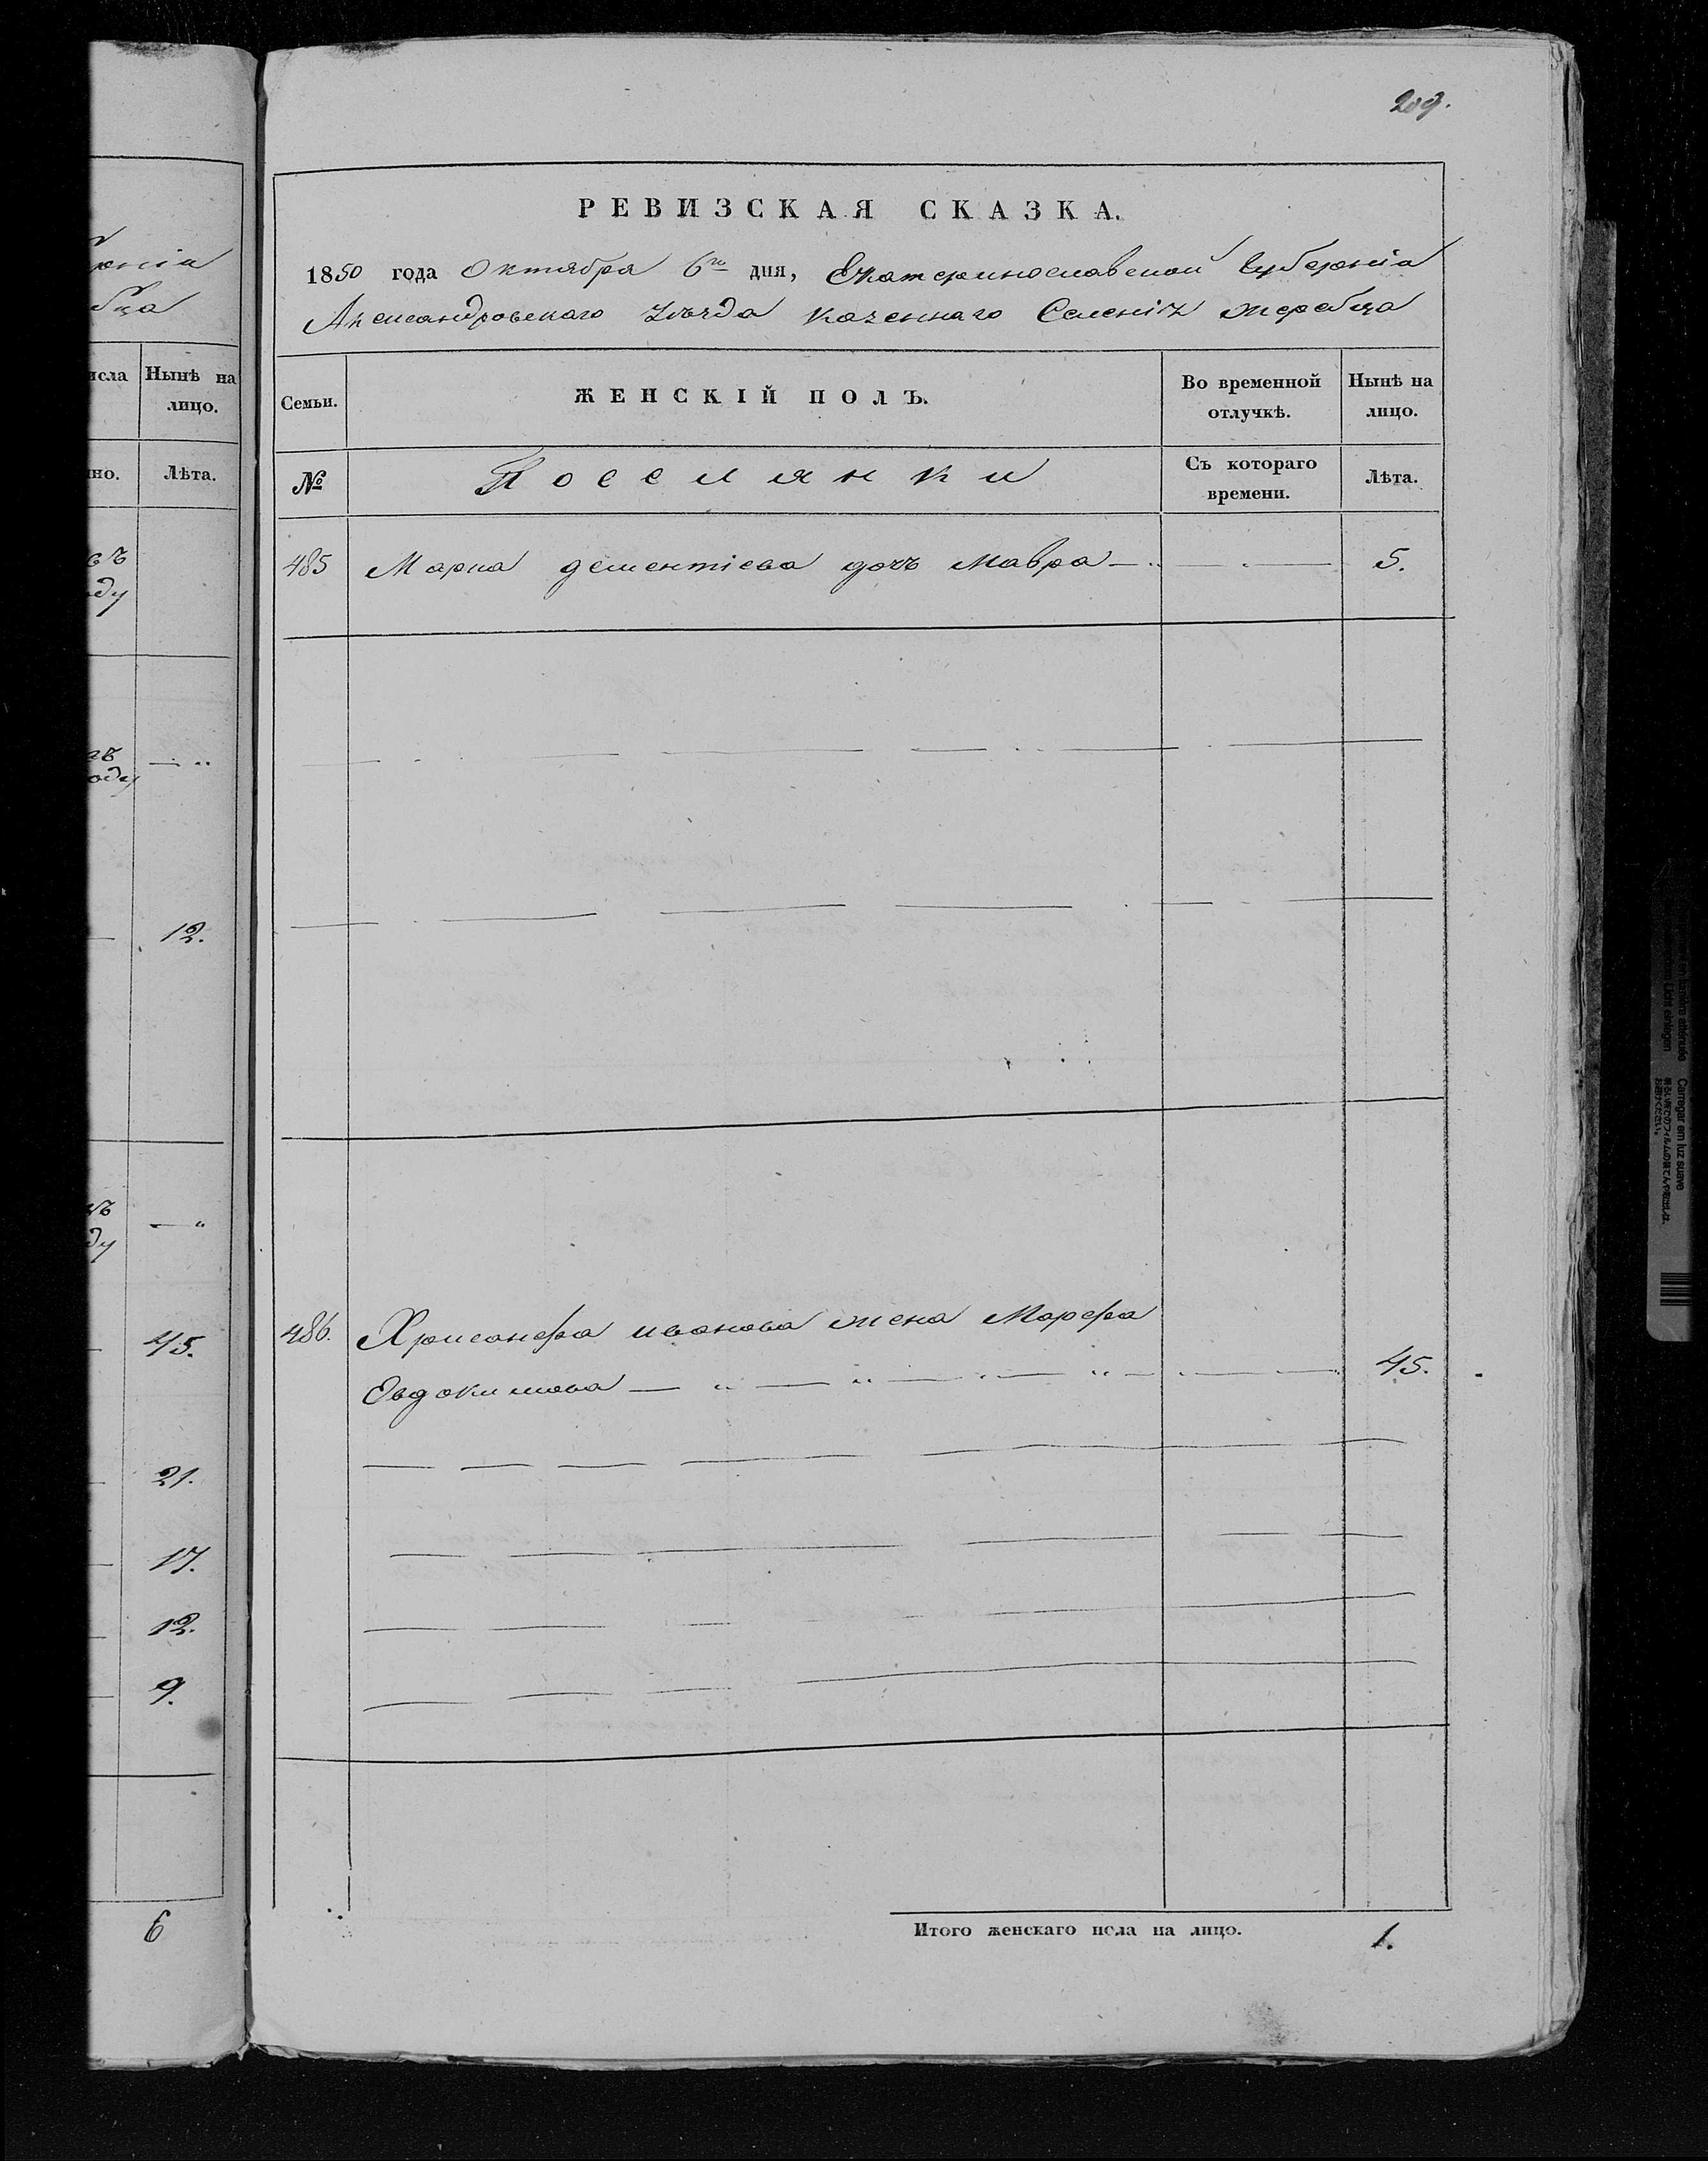 рніи
бца
исла
Нынѣ на
лицо.
но.
Лѣта.
въ
оду
оду
12.
ду
45.
21.
17.
12.
9.
6
209.
РЕВИЗСКАЯ СКАЗКА.
1850 года Октября 6го дня, Екатеринославской Губерніи
Александровскаго Уѣзда казеннаго Селенія Жеребца
Семьи.
ЖЕНСКІЙ ПОЛЪ.
Во временной
отлучкѣ.
Нынѣ на
лицо.
№
Поселянки
Съ котораго
времени.
Лѣта.
485 Марка дементіева дочь Мавра 5.
486. Хрисанфа иванова жена Марфа
Овдокимова 45.
Итого женскаго пола на лицо. 1.